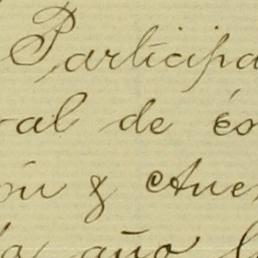 Participa
ral de és
ón y Aue
año